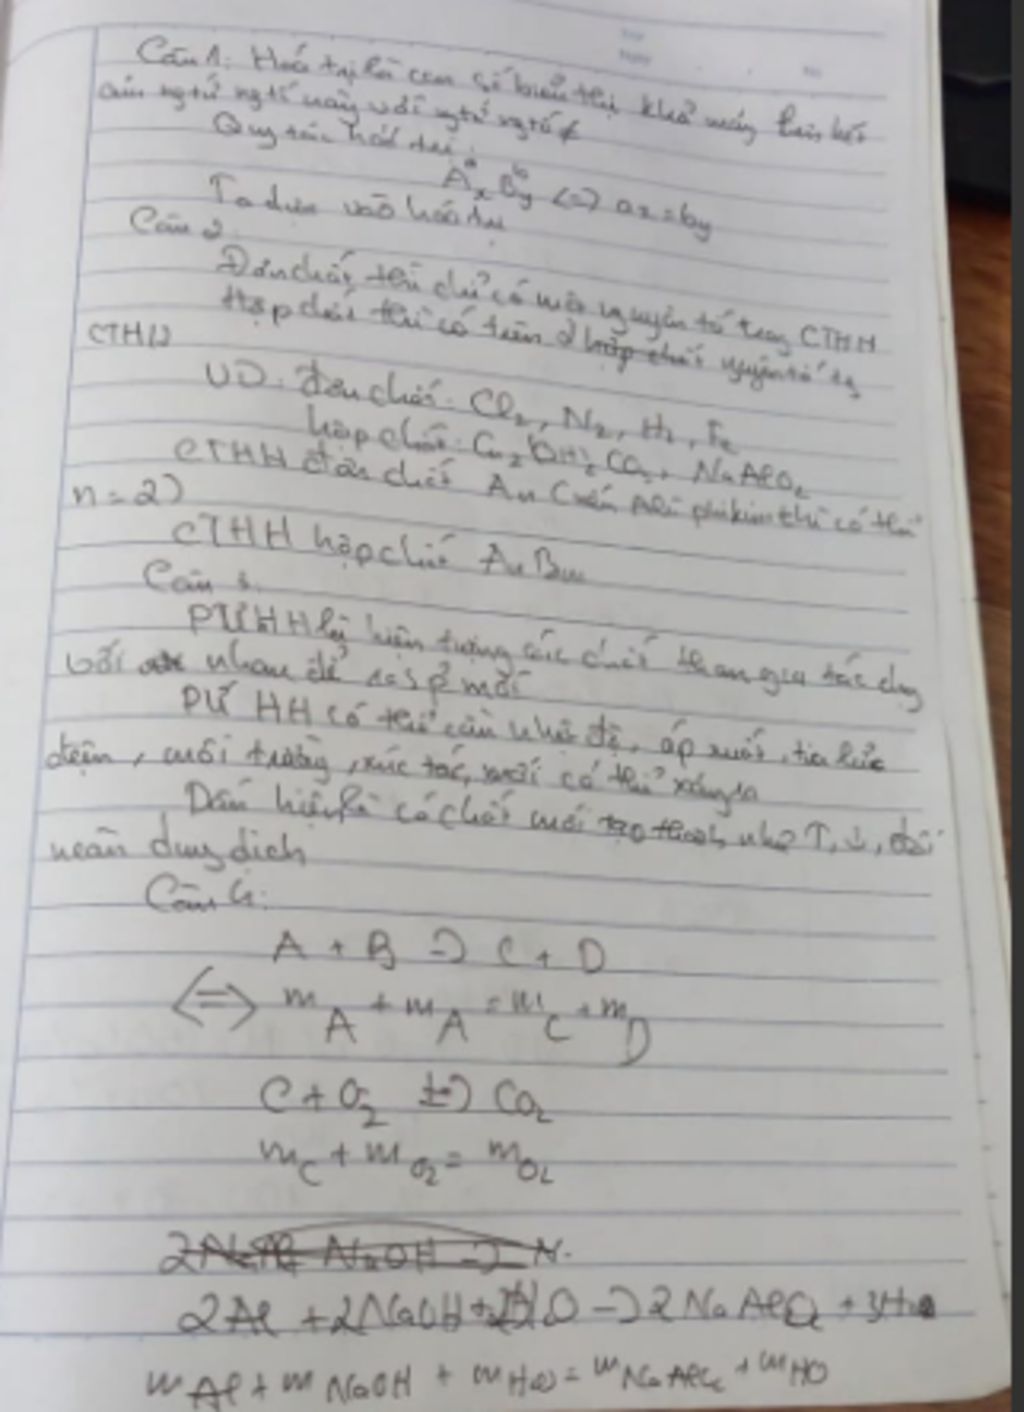 Câu 1: Hoá trị là con số biểu thị khả năng liên kết
của ngtử ngtố này với ngtử ngtố ≠
Quy tắc hoá trị:
a b
AxBy <=> ax = by
Ta dựa vào hoá trị
Câu 2
Đơn chất thì chỉ có một nguyên tố trong CTHH
Hợp chất thì có trên 2 nguyên tố
CTHH
VD: đơn chất: Cl2, N2, H2, Fe
hợp chất: Cu2(OH)2CO3, NaAlO2
CTHH đơn chất An (nếu phi kim thì có thể
n = 2)
CTHH hợp chất AnBm
Câu 3.
PỨHH là hiện tượng các chất tham gia tác dụng
với nhau để ra sp mới
PỨ HH có thể cần nhiệt độ, áp suất, tia lửa
điện, môi trường, xúc tác, mới có thể xảy ra
Dấu hiệu là có chất mới tạo thành như ↑, ↓, đổi
màu dung dịch
Câu 4:
A + B => C + D
<=> mA + mA = mC + mD
C + O2 => CO2
mC + mO2 = mO2
2Al + 2NaOH + 2H2O -> 2NaAlO2 + 3H2
mAl + mNaOH + mH2O = mNaAlO2 + mHO